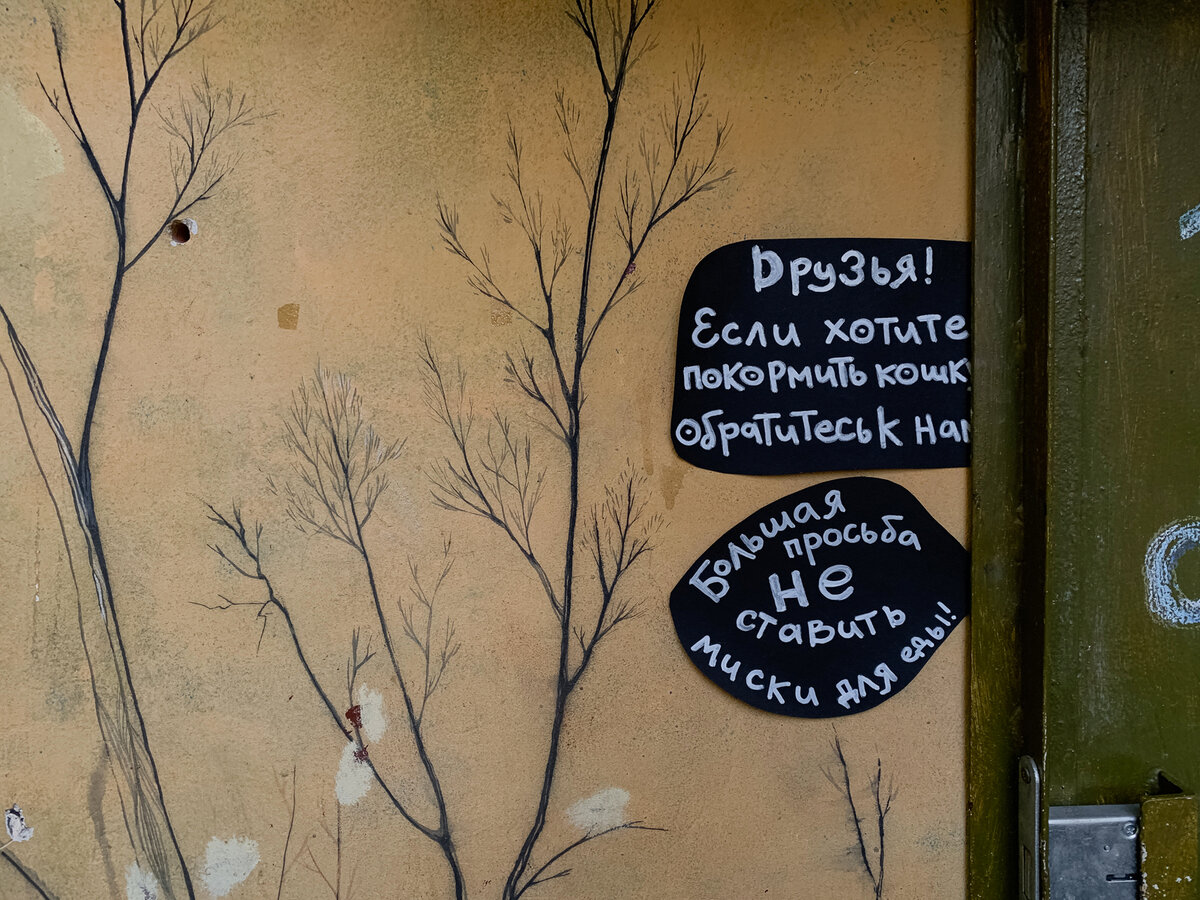 Друзья!
Если хотите
покормить кошку
обратитесь к нам
Большая
просьба
не
ставить
миски для еды!